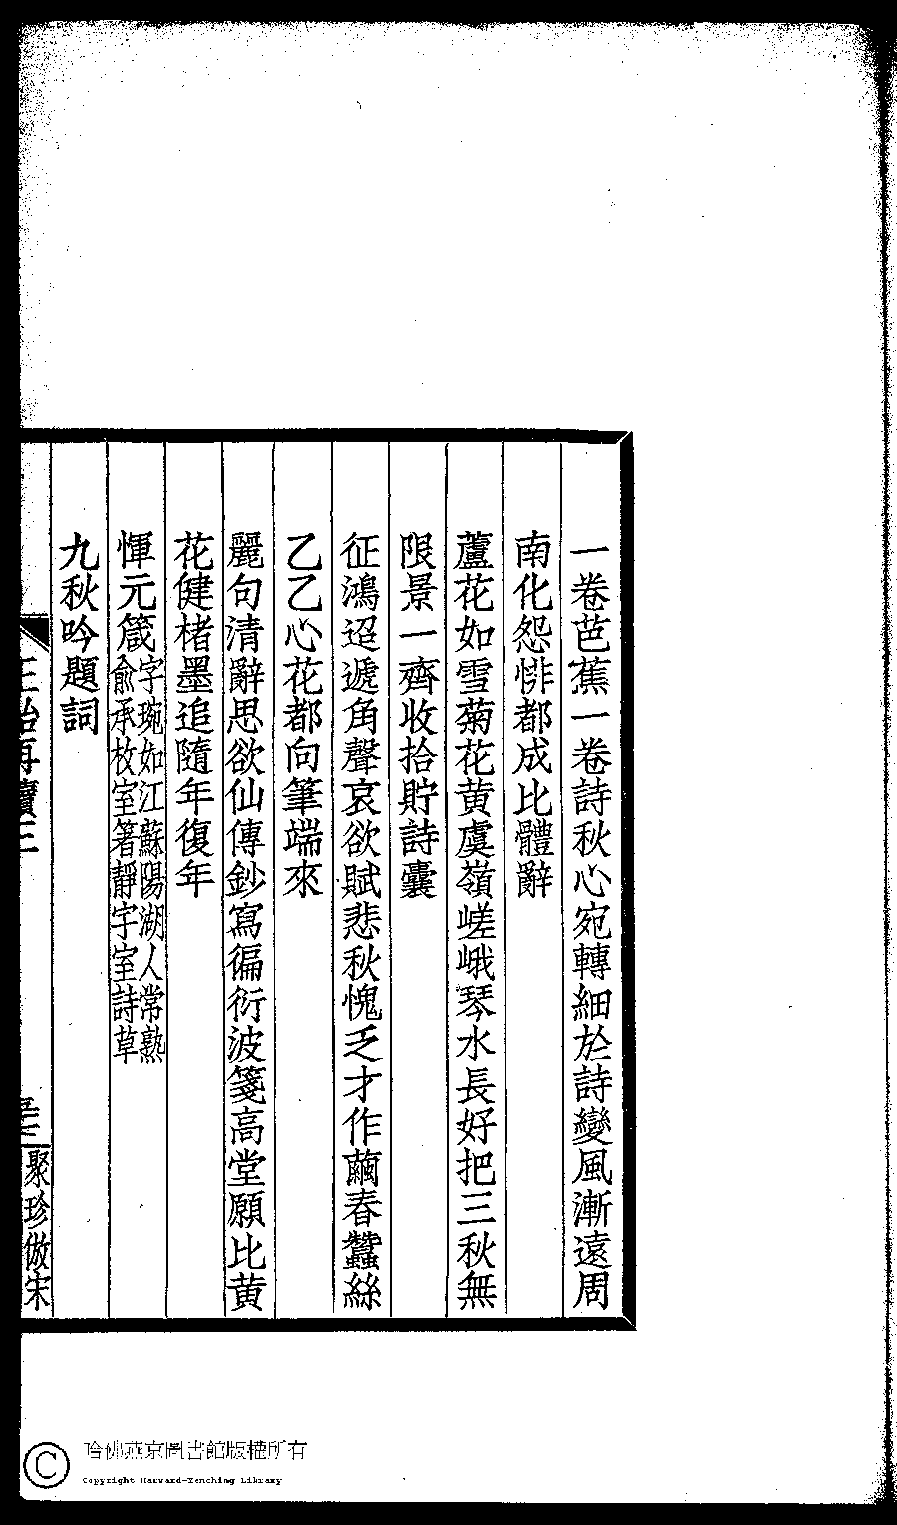 一卷芭蕉一卷詩秋心宛轉細於詩變風漸遠周
南化怨悱都成比體辭
蘆花如雪菊花黄虞嶺嵯峨琴水長好把三秋無
限景一齊收拾貯詩囊
征鴻迢遞角聲哀欲賦悲秋愧乏才作繭春蠶絲
乙乙心花都向筆端來
麗句清辭思欲仙傳鈔寫徧衍波箋高堂願比黄
花健楮墨追隨年復年
惲元箴
字琬如江蘇陽湖人常熟
俞承枚室箸靜宇室詩草
九秋吟題詞
聚珍倣宋
哈佛燕京圖書館版權所有
Copyright Harvard-Yenching Library